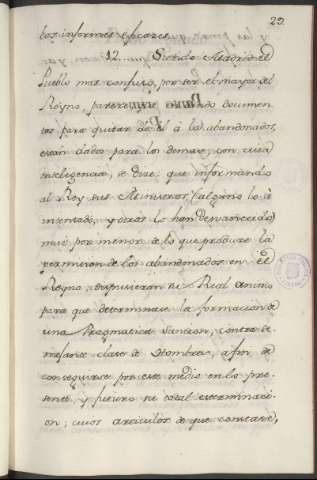 29.
los informes eficaces.
12. Siendo Madrid el
Pueblo mas confuso, por ser el mayor del
Reyno, parece que dado documen-
tos para quitar de el á los abandonados,
estan dados para los demas; con cuia
inteligencia, se dice: que informando
al Rey sus Ministros (alguno lo á
intentado, y otros lo han desvanecido)
mui por menor de lo que produze la
permision de los abandonados en el
Reyno; dispusieran su Real animo
para que determinase la formacion de
una Pragmatica Sancion, contra se-
mejante clase de Hombres, afin de
conseguirse por este medio en lo pre-
sente, y futuro su total exterminaci-
on; cuios articulos de que constase,